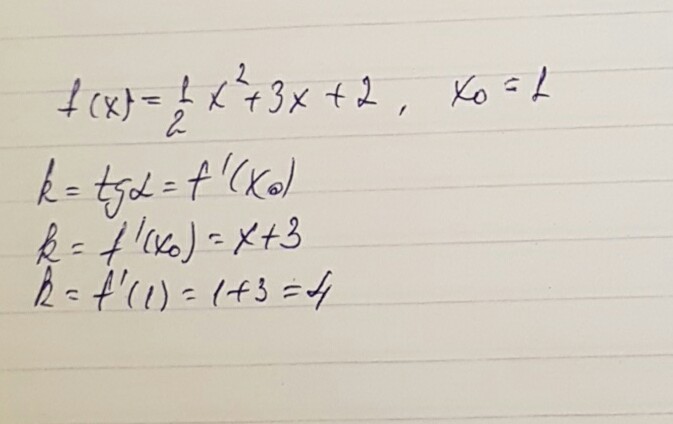 f(x) = 1/2 x² + 3x + 2, x₀ = 1
k = tgα = f'(x₀)
k = f'(x₀) = x+3
k = f'(1) = 1+3 = 4